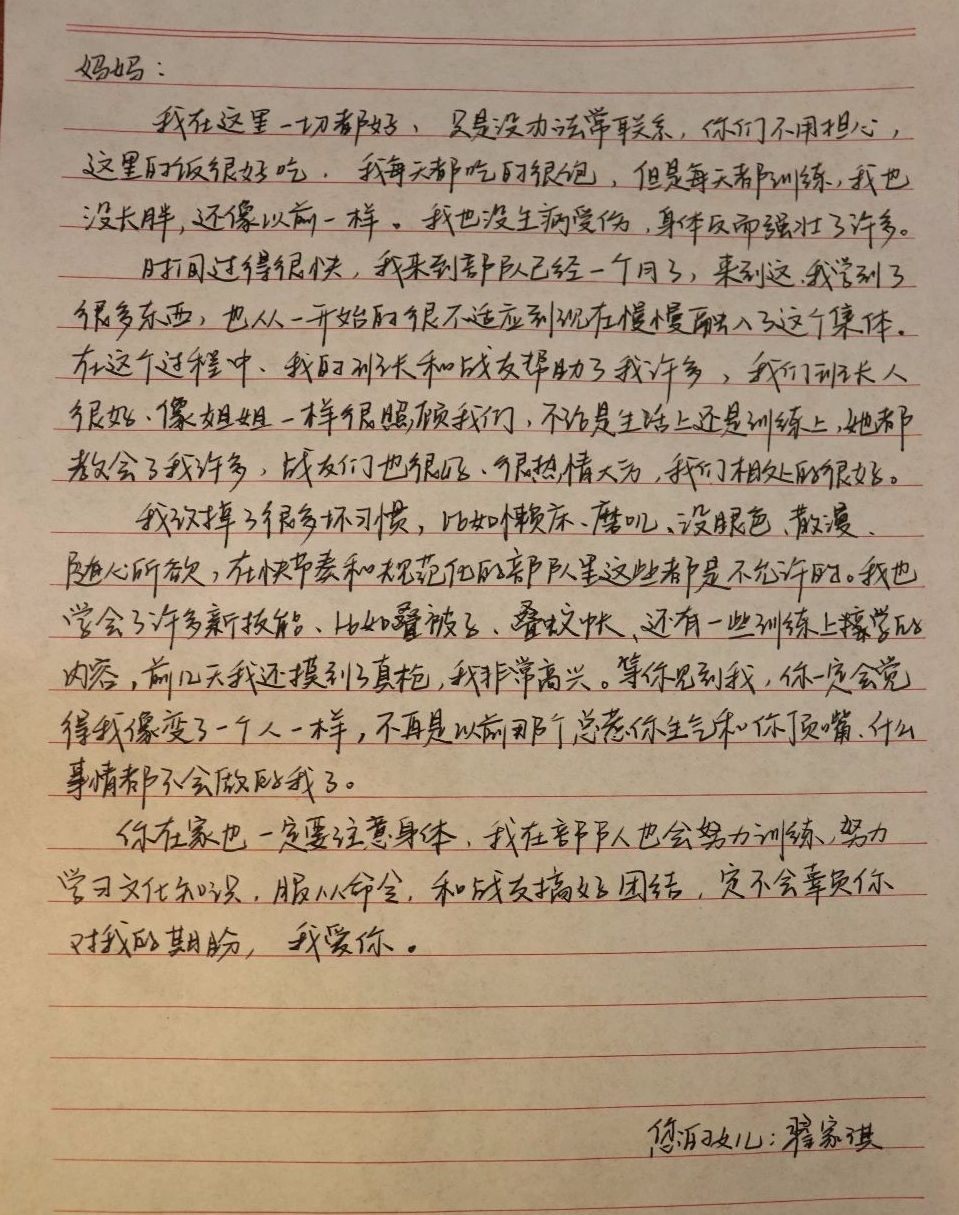 妈妈：
我在这里一切都好，只是没办法常联系，你们不用担心，
这里的饭很好吃．我每天都吃的很饱，但是每天都训练，我也
没长胖，还像以前一样。我也没生病受伤，身体反而强壮了许多。
时间过得很快，我来到部队已经一个月了，来到这、我学到了
很多东西，也从一开始的很不适应到现在慢慢融入了这个集体．
在这个过程中、我的班长和战友帮助了我许多，我们班长人
很好、像姐姐一样很照顾我们，不论是生活上还是训练上，她都
教会了我许多，战友们也很好、很热情大方，我们相处的很好。
我改掉了很多坏习惯，比如懒床、磨叽、没眼色、散漫、
随心所欲，在快节奏和规范化的部队里这些都是不允许的。我也
学会了许多新技能、比如叠被子、叠蚊帐、还有一些训练上擦学的
内容，前几天我还摸到了真枪，我非常高兴。等你见到我，你一定会觉
得我像变了一个人一样，不再是以前那个总惹你生气和你顶嘴、什么
事情都不会做的我了。
你在家也一定要注意身体，我在部队也会努力训练，努力
学习文化知识，服从命令，和战友搞好团结，定不会辜负你
对我的期盼，我爱你。
您的女儿：翟家琪